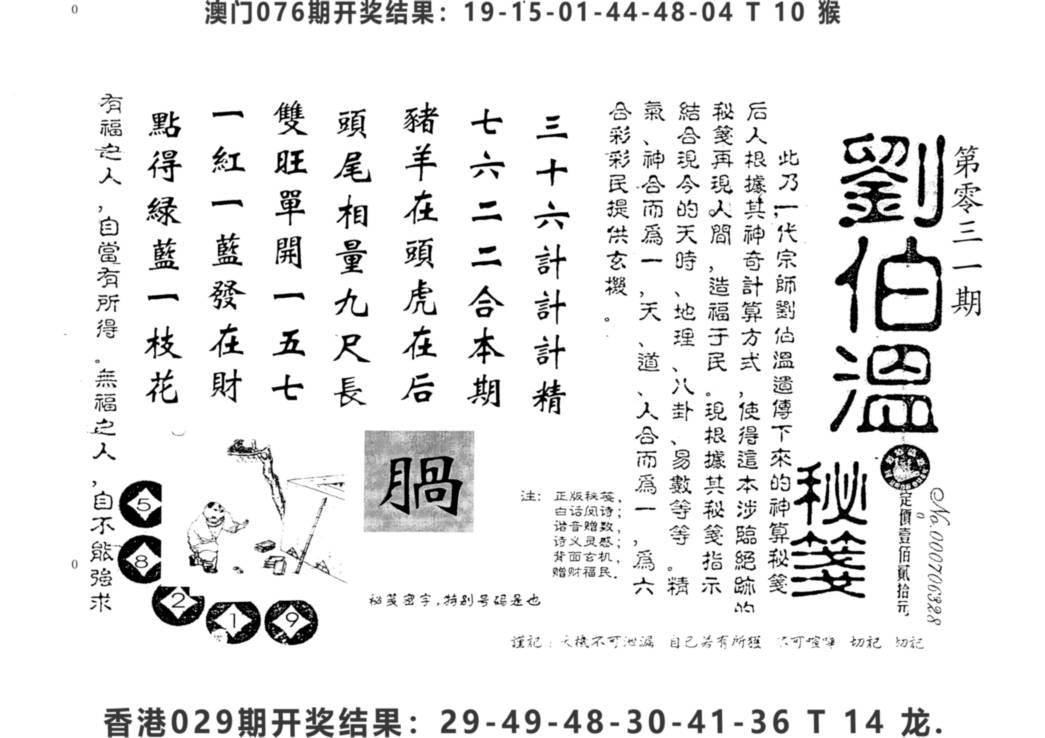 澳门076期开奖结果：19-15-01-44-48-04 T 10 猴
第零三一期
劉伯溫
秘箋
定價壹佰貳拾元
No.000706328
此乃一代宗師劉伯溫遺傳下來的神算秘箋
后人根據其神奇計算方式,使得這本涉臨絕跡的
秘箋再現人間,造福于民。現根據其秘箋指示
結合現今的天時、地理、八卦、易數等等。精
氣、神合而爲一,天、道、人合而爲一,爲六
合彩彩民提供玄機。
三十六計計計精
七六二二合本期
豬羊在頭虎在后
頭尾相量九尺長
雙旺單開一五七
一紅一藍發在財
點得緑藍一枝花
有福之人,自當有所得。無福之人,自不能強求
腡
注: 正版秘箋,
白话闵诗;
谐音赠数,
诗义灵感;
背面玄机,
赠财福民.
5
8
2
1
9
秘笺密字,特别号码是也
謹記:天機不可泄漏 自己若有所獲 不可喧嘩 切記 切記
香港029期开奖结果：29-49-48-30-41-36 T 14 龙.
0
0